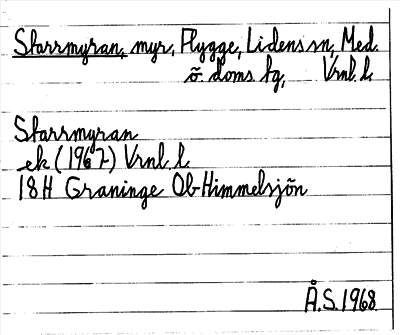 Starrmyran, myr, Flygge, Lidens sn, Med.
ö. doms. tg, Vrnl. l.
Starrmyran
ek (1967) Vrnl. l.
18H Graninge Ob Himmelsjön
Å.S. 1968